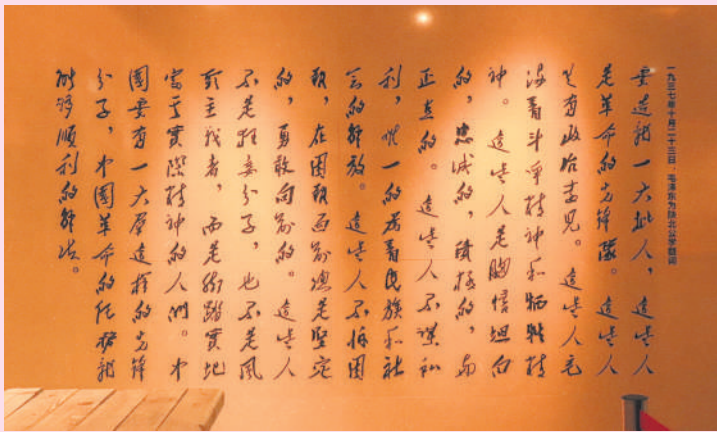 一九三七年十月二十三日，毛泽东为陕北公学题词
要造就一大批人，這些人
是革命的先锋隊。這些人
具有政治远見。這些人充
满着斗爭精神和牺牲精
神。這些人是胸懷坦白
的，忠誠的，積極的，与
正直的。這些人不謀私
利，唯一的为着民族和社
会的解放。這些人不怕困
难，在困难面前總是堅定
的，勇敢向前的。這些人
不是狂妄分子，也不是風
頭主義者，而是脚踏實地
富于實際精神的人們。中
國要有一大群這样的先锋
分子，中國革命的任務就
能够順利的解決。